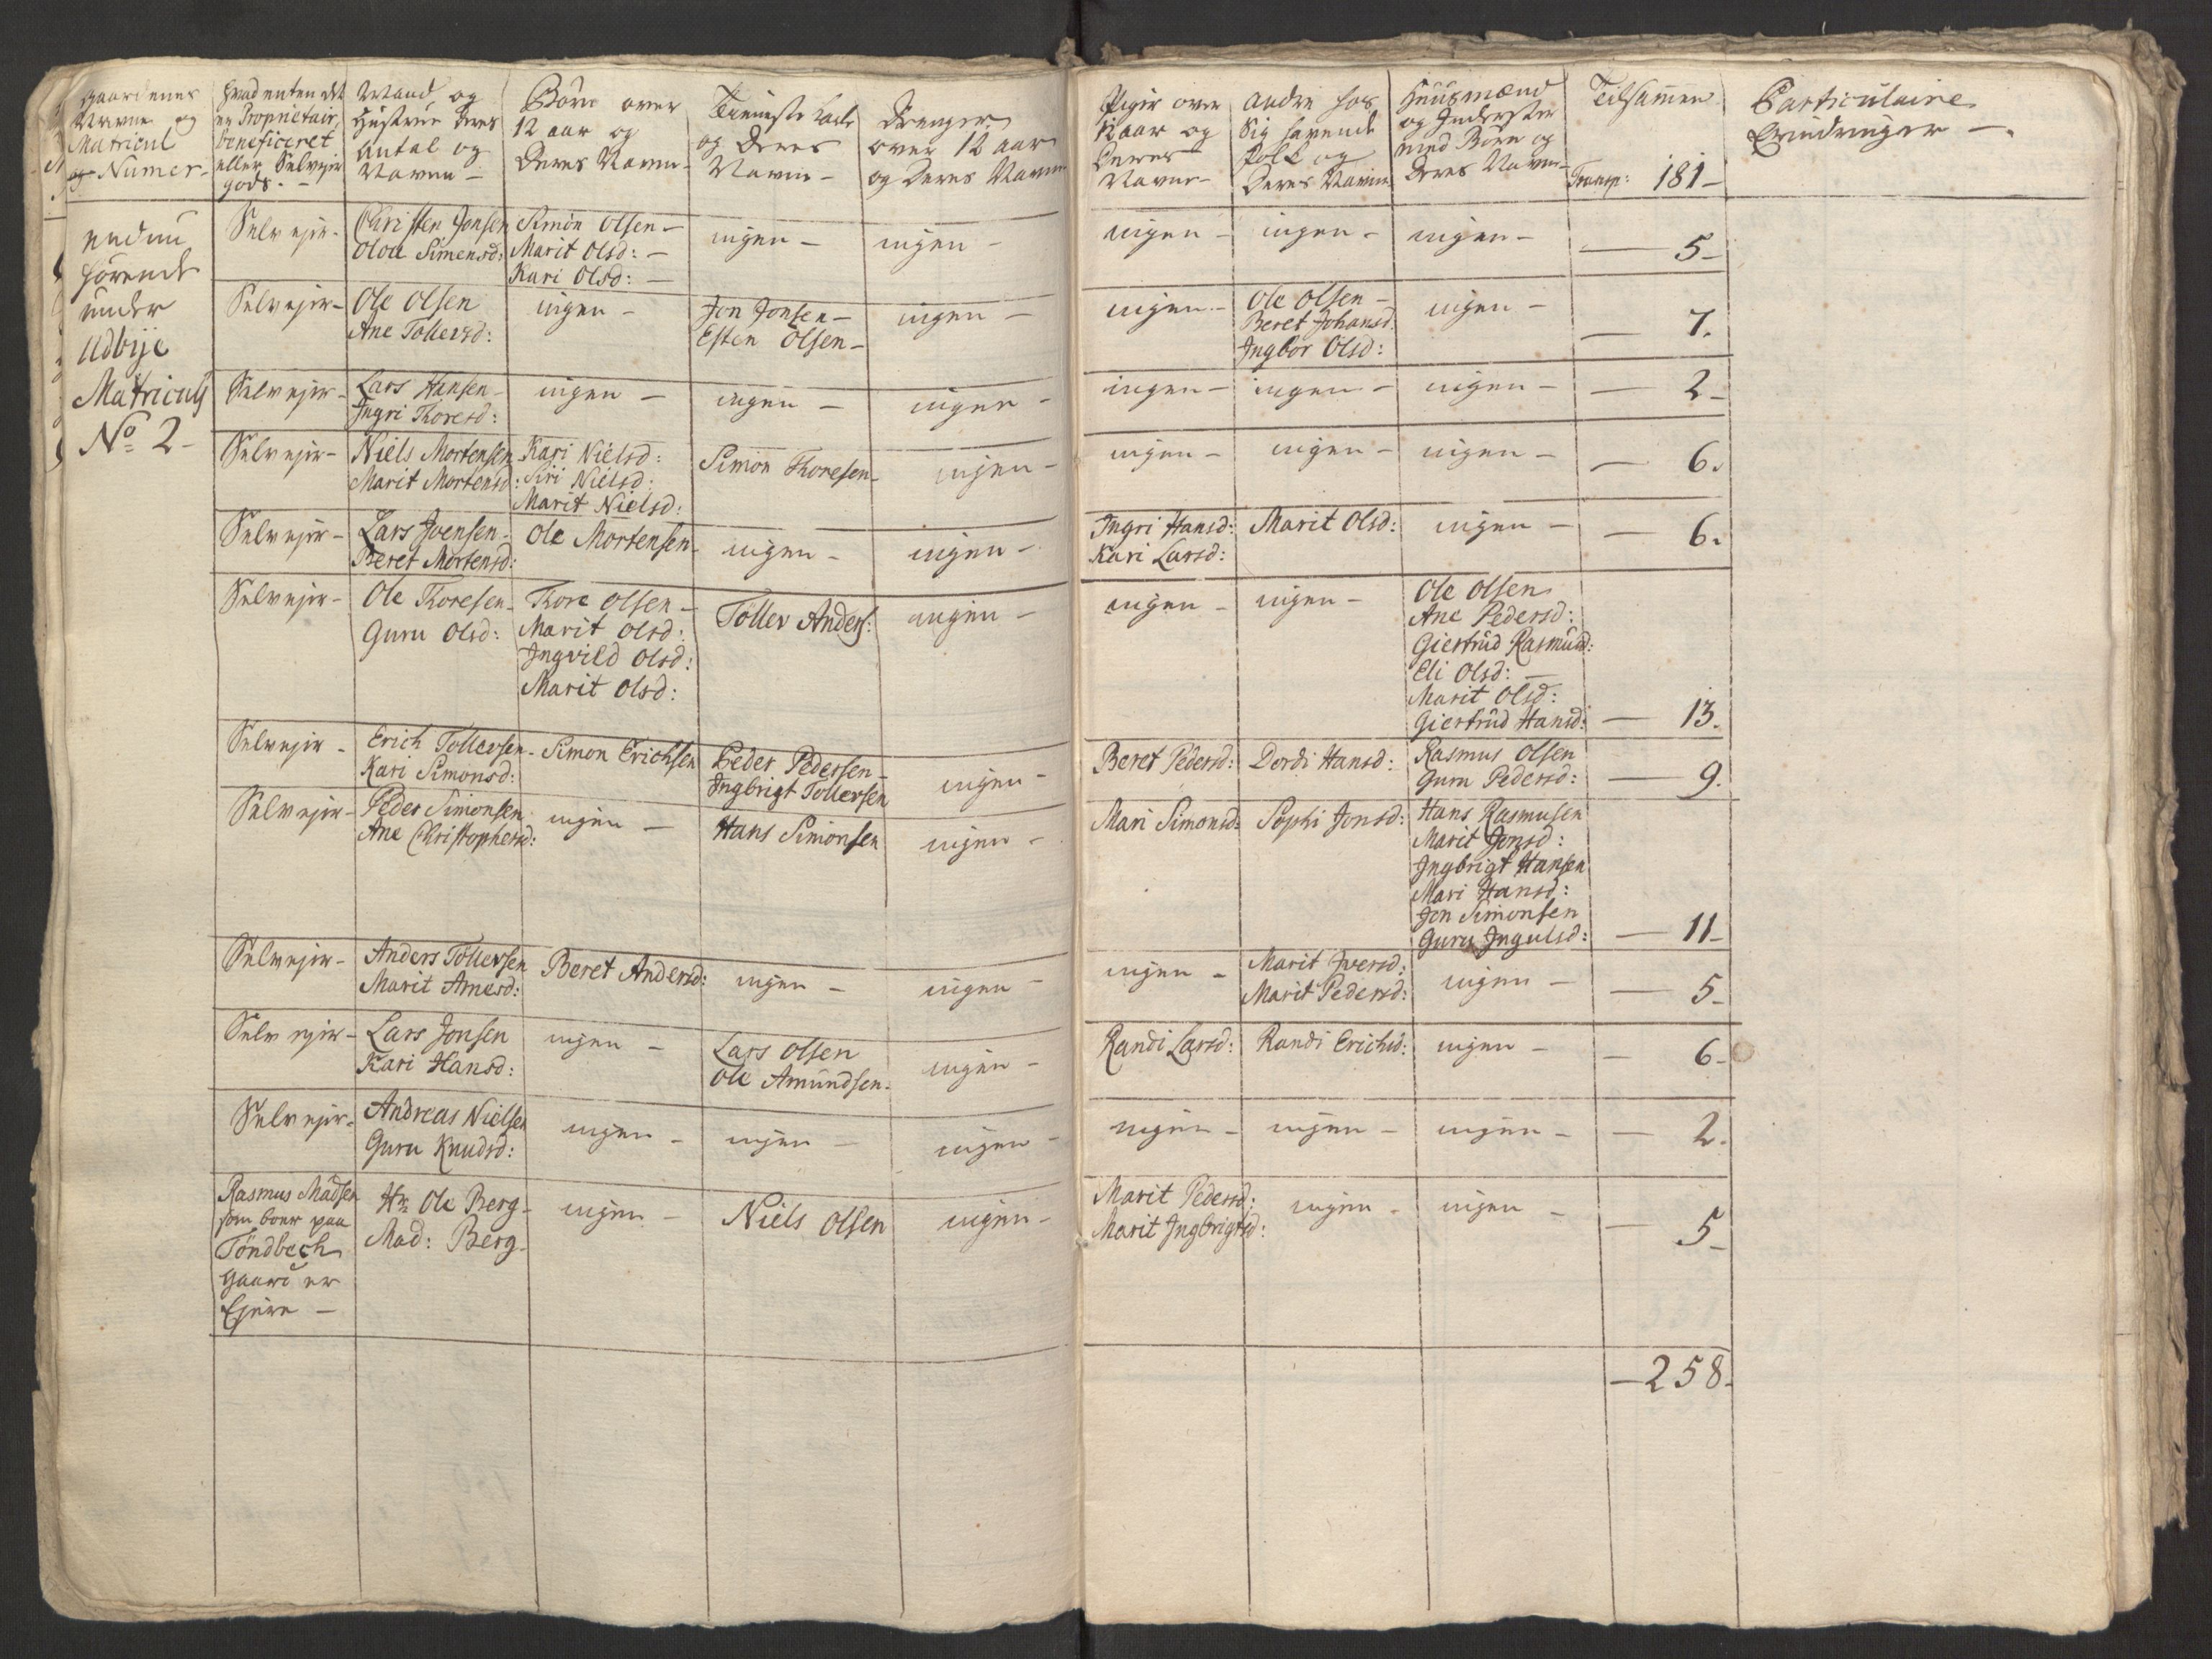 Gaardenes Navne og Matricul og Numer-
Hvad enten det er Proprietair, beneficeret eller Selvejer gods. -
Mand og Hustrue deres Antal og Navne -
Börn over 12 aar og Deres Navne -
Tieneste Karle og Deres Navne -
Drenger over 12 aar og Deres Navne
Piger over 12 aar og Deres Navne -
Andre hos sig havende Folk og Deres Navne
Huusmænd og Inderster med Börn og Deres Navne -
Tilsammen
Particulaire Erindringer -.
Transp: 181 -
endnu
hörende
under
Udbÿe
Matriculs
No 2 -
Selvejer - Christen Jonsen Simon Olsen - ingen - ingen - ingen - ingen - ingen - — 5 -
Oloe Simensd: Marit Olsd: -
Kari Olsd: -
Selvejer - Ole Olsen ingen - Jon Jonsen - ingen - ingen - Ole Olsen - ingen - — 7.
Ane Tollersd: Esten Olsen - Beret Johansd.
Ingbor Olsd:
Selvejer - Lars Hansen - ingen - ingen - ingen - ingen - ingen - ingen - — 2 -
Ingri Thoresd:
Selvejer - Niels Mortensen Kari Nielsd: Simon Thoresen - ingen - ingen - ingen - ingen - — 6.
Marit Mortensd: Siri Nielsd:
Marit Nielsd:
Selvejer - Lars Joensen - Ole Mortensen - ingen - ingen - Ingri Hansd: Marit Olsd: ingen - — 6.
Beret Mortensd: Kari Larsd:
Selvejer - Ole Thoresen - Thore Olsen - Toller Anders: ingen - ingen - ingen - Ole Olsen
Guru Olsd: Marit Olsd: Ane Pedersd:
Ingvild Olsd: Giertrud Rasmusd:
Marit Olsd: Eli Olsd: -
Marit Olsd:
Giertrud Hansd: — 13.
Selvejer - Erich Tollersen - Simon Erichsen Peder Pedersen - ingen - Beret Pedersd: Dordi Hansd: Rasmus Olsen
Kari Simonsd: Ingbrigt Tollersen Guru Pedersd: — 9.
Selvejer - Peder Simonsen ingen - Hans Simonsen ingen - Mari Simonsd: Sophi Jonsd: Hans Rasmusen
Ane Christophersd: Marit Jonsd:
Ingbrigt Hansen
Mari Hansd:
Jon Simonsen
Guru Ingulsd: — 11 -
Selvejer - Anders Tollersen Beret Andersd: ingen - ingen - ingen - Marit Iversd: ingen - — 5 -
Marit Arnesd: Marit Pedersd:
Selvejer - Lars Jonsen ingen - Lars Olsen ingen - Randi Larsd: Randi Erichsd: ingen - - 6 -
Kari Hansd: Ole Amundsen -
Selvejer - Andreas Nielsen ingen - ingen - ingen - ingen - ingen - ingen - — 2.
Guru Knudsd:
Rasmus Madsen Hr Ole Berg - ingen - Niels Olsen ingen - Marit Pedersd: ingen - ingen - — 5 -
som boer paa Mad: Berg - Marit Ingbrigtsd:
Töndbech
Gaard er
Ejere -
— 258 -